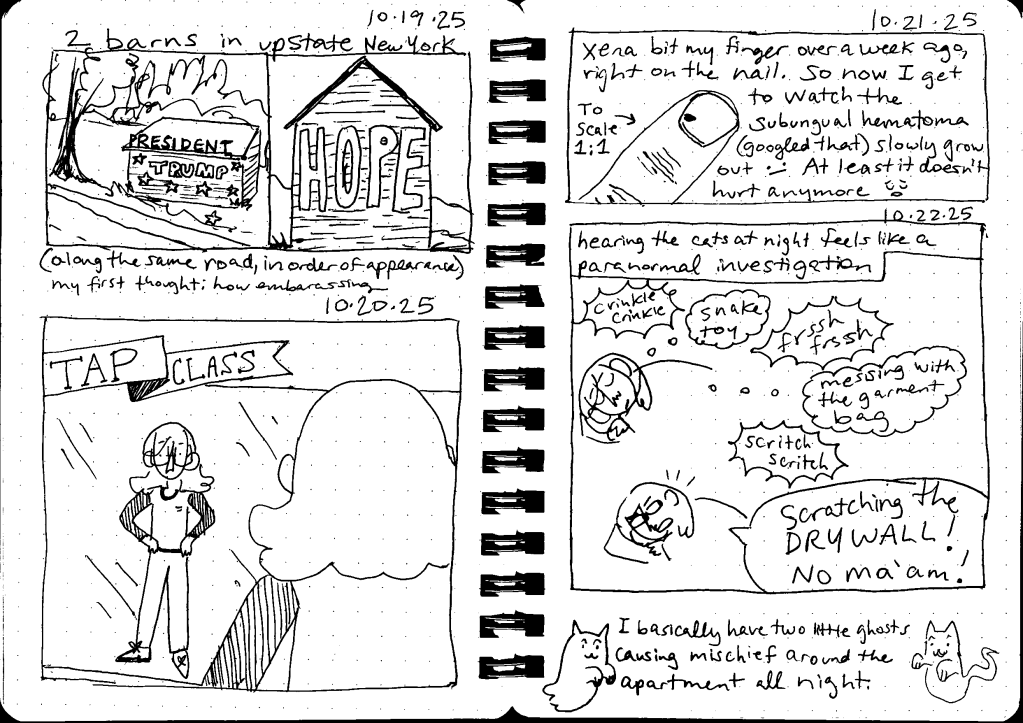 10.19.25
2 barns in upstate New York
PRESIDENT
TRUMP
HOPE
(along the same road, in order of appearance)
my first thought: how embarassing
10.20.25
TAP CLASS
10.21.25
Xena bit my finger over a week ago,
right on the nail. So now I get
to watch the
subungual hematoma
(googled that) slowly grow
out :) At least it doesn't
hurt anymore
To
scale
1:1
10.22.25
hearing the cats at night feels like a
paranormal investigation
crinkle
crinkle
snake
toy
frssh
frssh
messing with
the garment
bag
scritch
scritch
Scratching the
DRYWALL!
No ma'am!
I basically have two little ghosts
causing mischief around the
apartment all night.